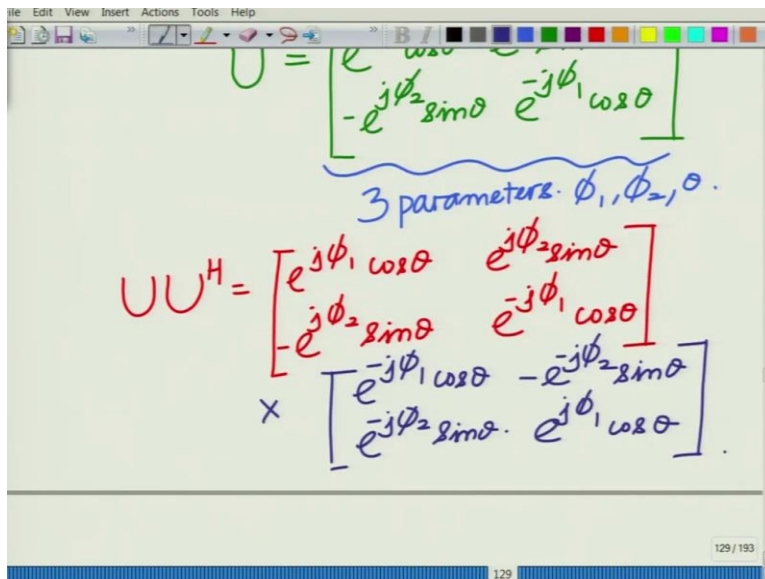 ile Edit View Insert Actions Tools Help
B I
U = [e
-e^{jϕ₂} sinθ e^{-jϕ₁} cosθ]
3 parameters. ϕ₁, ϕ₂, θ.
UU^H = [e^{jϕ₁} cosθ e^{jϕ₂} sinθ
-e^{jϕ₂} sinθ e^{-jϕ₁} cosθ]
× [e^{-jϕ₁} cosθ -e^{-jϕ₂} sinθ
e^{-jϕ₂} sinθ. e^{jϕ₁} cosθ].
129 / 193
129